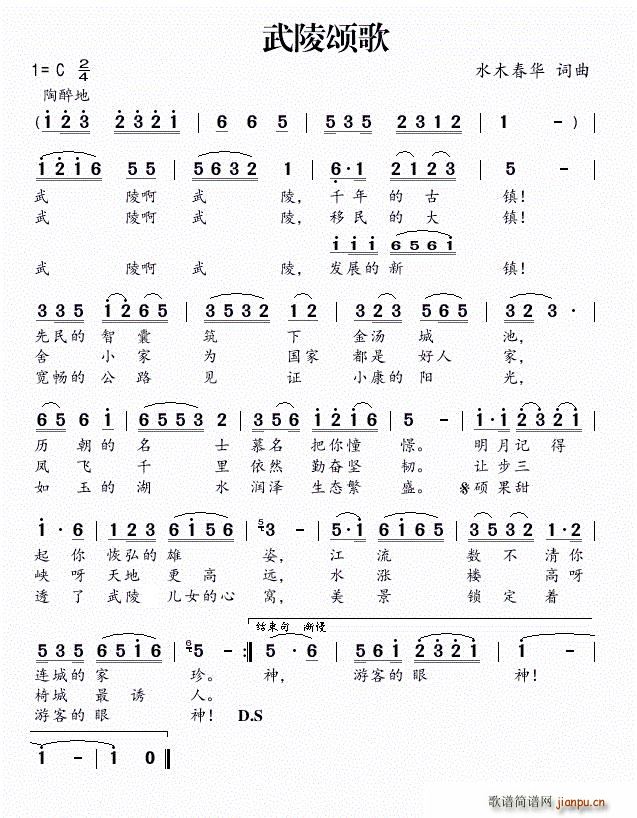 武陵颂歌
1= C 2/4
水木春华 词曲
陶醉地
( 1 2 3 2 3 2 1 | 6 6 5 | 5 3 5 2 3 1 2 | 1 - ) |
1 2 1 6 5 5 | 5 6 3 2 1 | 6 · 1 2 1 2 3 | 5 - |
武 陵啊 武 陵, 千年 的 古 镇!
武 陵啊 武 陵, 移民 的 大 镇!
1 1 1 6 5 6 1
武 陵啊 武 陵, 发展的 新 镇!
3 3 5 1 2 6 5 | 3 5 3 2 1 2 | 3 2 3 5 6 5 | 3 2 3 · |
先民的 智 囊 筑 下 金汤 城 池,
舍 小 家 为 国家 都是 好人 家,
宽畅的 公 路 见 证 小康的 阳 光,
6 5 6 1 | 6 5 5 3 2 | 3 5 6 1 2 1 6 | 5 - | 1 · 1 2 3 2 1 |
历 朝 的 名 士 慕名 把你 憧 憬。 明 月 记 得
凤 飞 千 里 依然 勤奋 坚 韧。 让 步 三
如 玉 的 湖 水 润泽 生态 繁 盛。 硕 果 甜
1 · 6 | 1 2 3 6 1 5 6 | 5 3 - | 5 · 1 6 1 6 5 | 3 5 3 2 1 · 2 |
起 你 恢弘的 雄 姿, 江 流 数 不 清你
峡 呀 天地 更 高 远, 水 涨 楼 高呀
透 了 武陵 儿女的心 窝, 美 景 锁 定 着
结束句 渐慢
5 3 5 6 5 1 6 | 6 5 - :| 5 · 6 | 5 6 1 2 3 2 1 | 1 - |
连城的 家 珍。 神, 游客的 眼 神!
椅城 最 诱 人。
游客的 眼 神! D.S
1 - | 1 0 ||
歌谱简谱网 jianpu.cn